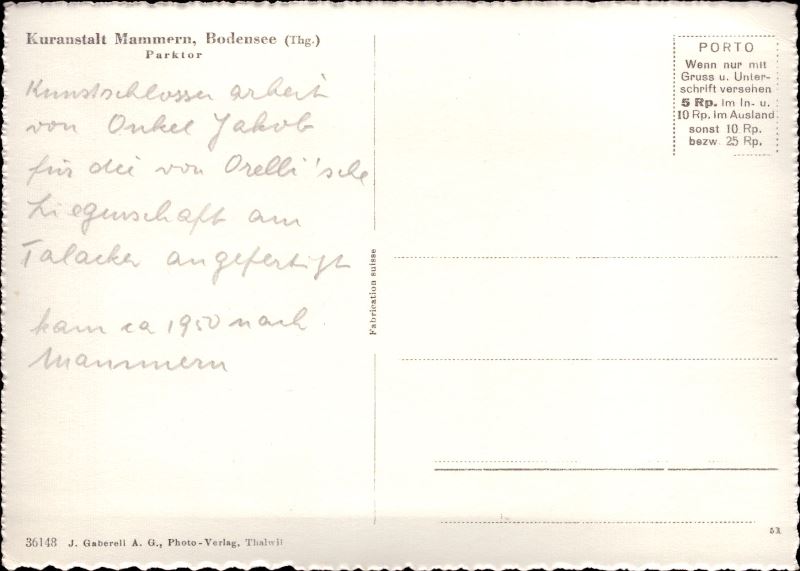 Kuranstalt Mammern, Bodensee (Thg.)
Parktor
Kunstschlosser arbeit
von Onkel Jakob
für die von Orelli'sche
Liegenschaft am
Talacker angefertigt
kam ca 1950 nach
Mammern
36148 J. Gaberell A. G., Photo-Verlag, Thalwil
Fabrication suisse
PORTO
Wenn nur mit
Gruss u. Unter-
schrift versehen
5 Rp. im In- u.
10 Rp. im Ausland
sonst 10 Rp.
bezw. 25 Rp.